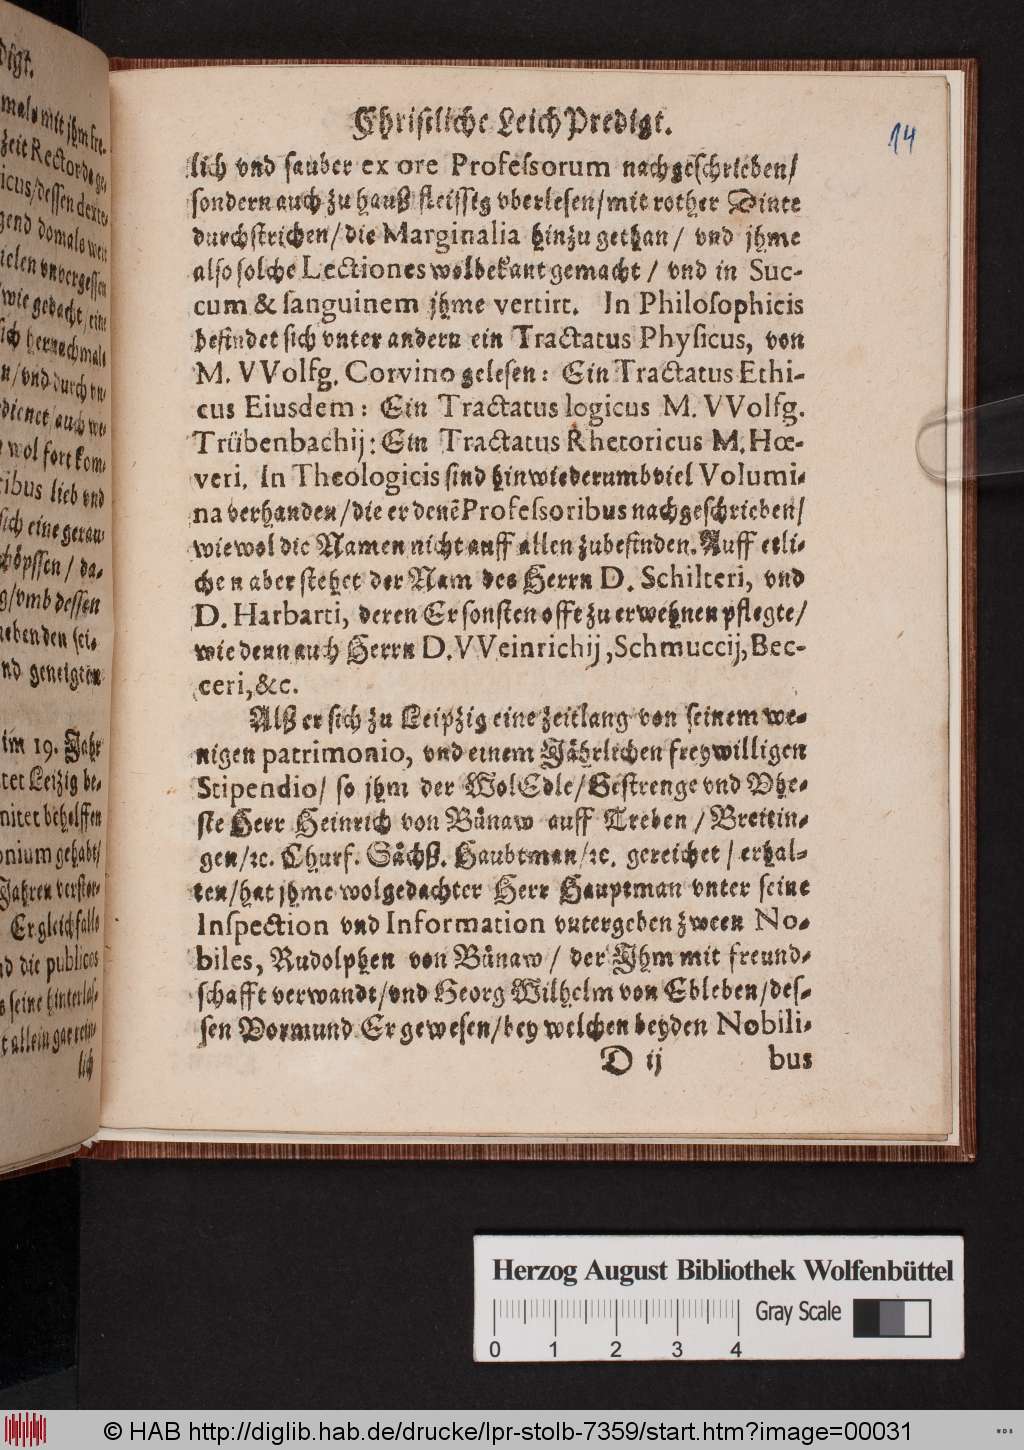 digt.
mals mit jhm fre-
zeit Rectorde ge-
icus/dessen dexte-
gend domals weit
ielen vnvergessen
wie gedacht/eine
sich hernachmals
n/vnd durch vn-
dienet/auch we-
wol fort kom-
ribus lieb vnd
sich eine geraw-
höpffen/da-
g/vmb dessen
nebenden sei-
nd geneigten
im 19. Jahr
tet Leizig be-
nitet behelffen
onium gehabt/
Jahren verstor-
Er gleichfalls
nd die publicas
s seine hinterlas-
t allein gar rein-
lich
Christliche LeichPredigt.
14
lich vnd sauber ex ore Profeſsorum nachgeschrieben/
sondern auch zu hauß fleissig vberlesen/mit rother Dinte
durchstrichen/die Marginalia hinzu gethan/ vnd jhme
also solche Lectiones wolbekant gemacht/ vnd in Suc-
cum & ſanguinem jhme vertirt. In Philoſophicis
befindet sich vnter andern ein Tractatus Phyſicus, von
M. VVolfg. Corvino gelesen: Ein Tractatus Ethi-
cus Eiusdem: Ein Tractatus logicus M. VVolfg.
Trübenbachij: Ein Tractatus Rhetoricus M. Hœ-
veri. In Theologicis sind hinwiederumb viel Volumi-
na verhanden/die er denẽ Profeſsoribus nachgeschrieben/
wiewol die Namen nicht auff allen zubefinden. Auff etli-
chen aber stehet der Nam des Herrn D. Schilteri, vnd
D. Harbarti, deren Er sonsten offt zu erwehnen pflegte/
wie denn auch Herrn D. VVeinrichij, Schmuccij, Bec-
ceri, &c.
Alß er sich zu Leipzig eine zeitlang von seinem we-
nigen patrimonio, vnd einem Jährlichen freywilligen
Stipendio/ so jhm der WolEdle/Gestrenge vnd Vhe-
ste Herr Heinrich von Bünaw auff Treben/Brettin-
gen/ꝛc. Churf. Sächß. Haubtman/ꝛc. gereichet/erhal-
ten/hat jhme wolgedachter Herr Hauptman vnter seine
Inſpection vnd Information vntergeben zween No-
biles, Rudolphen von Bünaw/ der Ihm mit freund-
schafft verwandt/vnd Georg Wilhelm von Ebleben/des-
sen Vormund Er gewesen/bey welchen beyden Nobili-
D ij bus
Herzog August Bibliothek Wolfenbüttel
Gray Scale
0 1 2 3 4
© HAB http://diglib.hab.de/drucke/lpr-stolb-7359/start.htm?image=00031